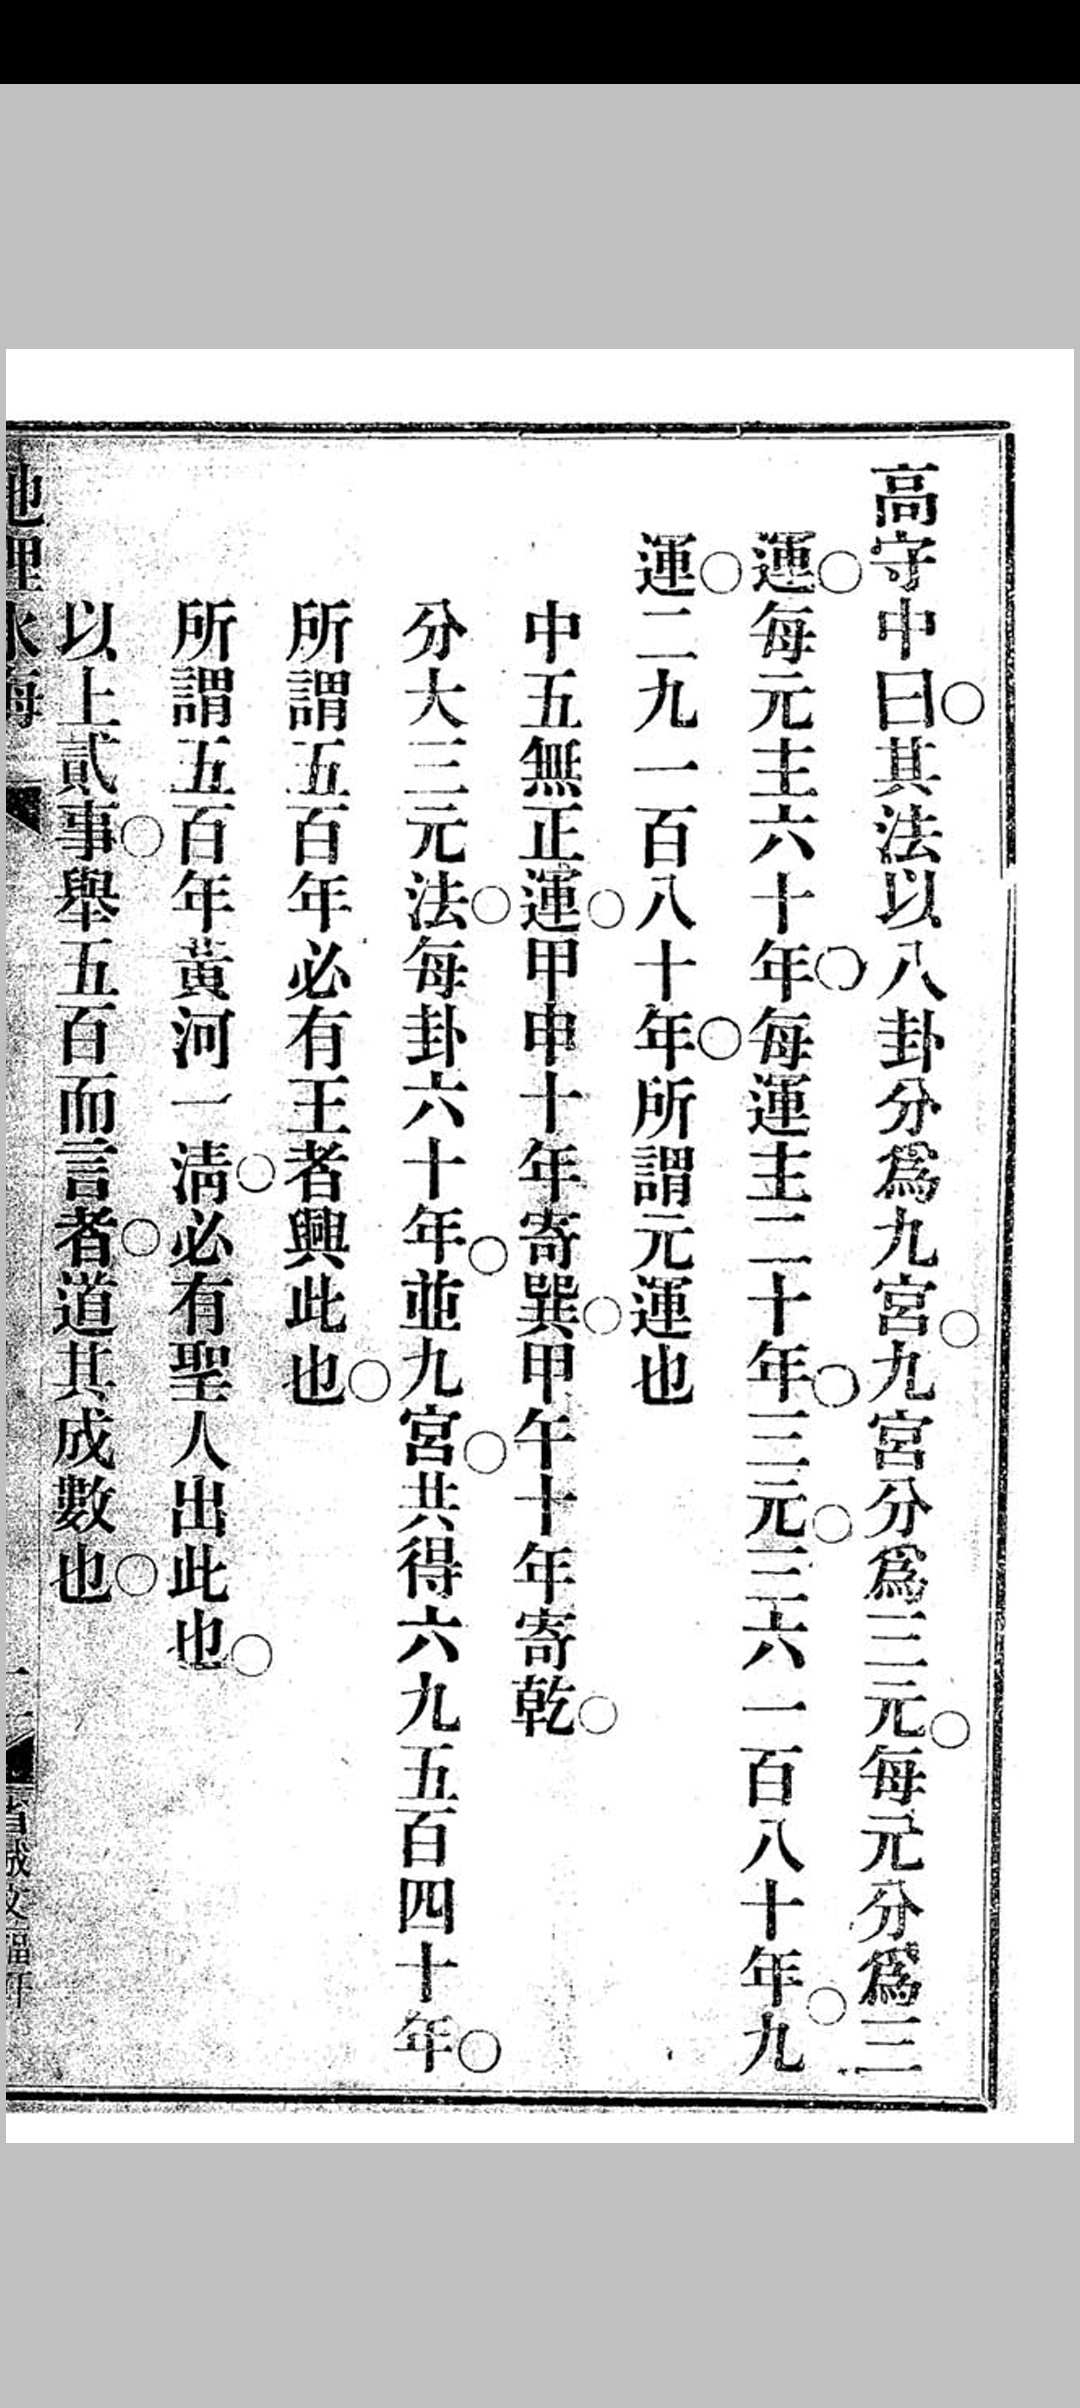 高守中曰其法以八卦分爲九宮九宮分爲三元每元分爲三
運每元主六十年每運主二十年三元三六一百八十年九
運二九一百八十年所謂元運也
中五無正運甲申十年寄巽甲午十年寄乾
分大三元法每卦六十年並九宮共得六九五百四十年
所謂五百年必有王者興此也
所謂五百年黃河一淸必有聖人出此也
以上貳事舉五百而言者道其成數也
地理水海